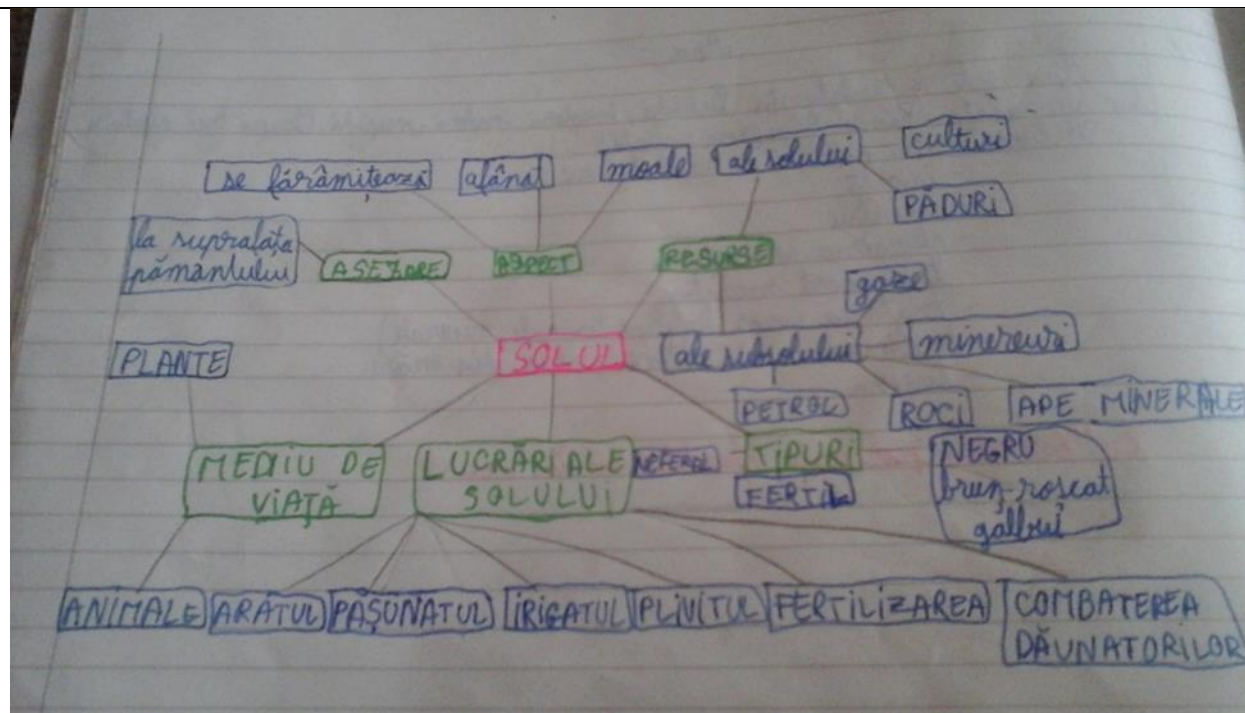 se fărâmițează
afânat
moale
ale solului
culturi
PĂDURI
la suprafața
pământului
ASEZARE
ASPECT
RESURSE
gaze
PLANTE
SOLUL
ale subsolului
minereuri
PETROL
ROCI
APE MINERALE
MEDIU DE
VIAȚĂ
LUCRĂRI ALE
SOLULUI
NEFERTIL
TIPURI
FERTIL
NEGRU
brun-roșcat
galbui
ANIMALE
ARATUL
PĂȘUNATUL
IRIGATUL
PLIVITUL
FERTILIZAREA
COMBATEREA
DĂUNATORILOR